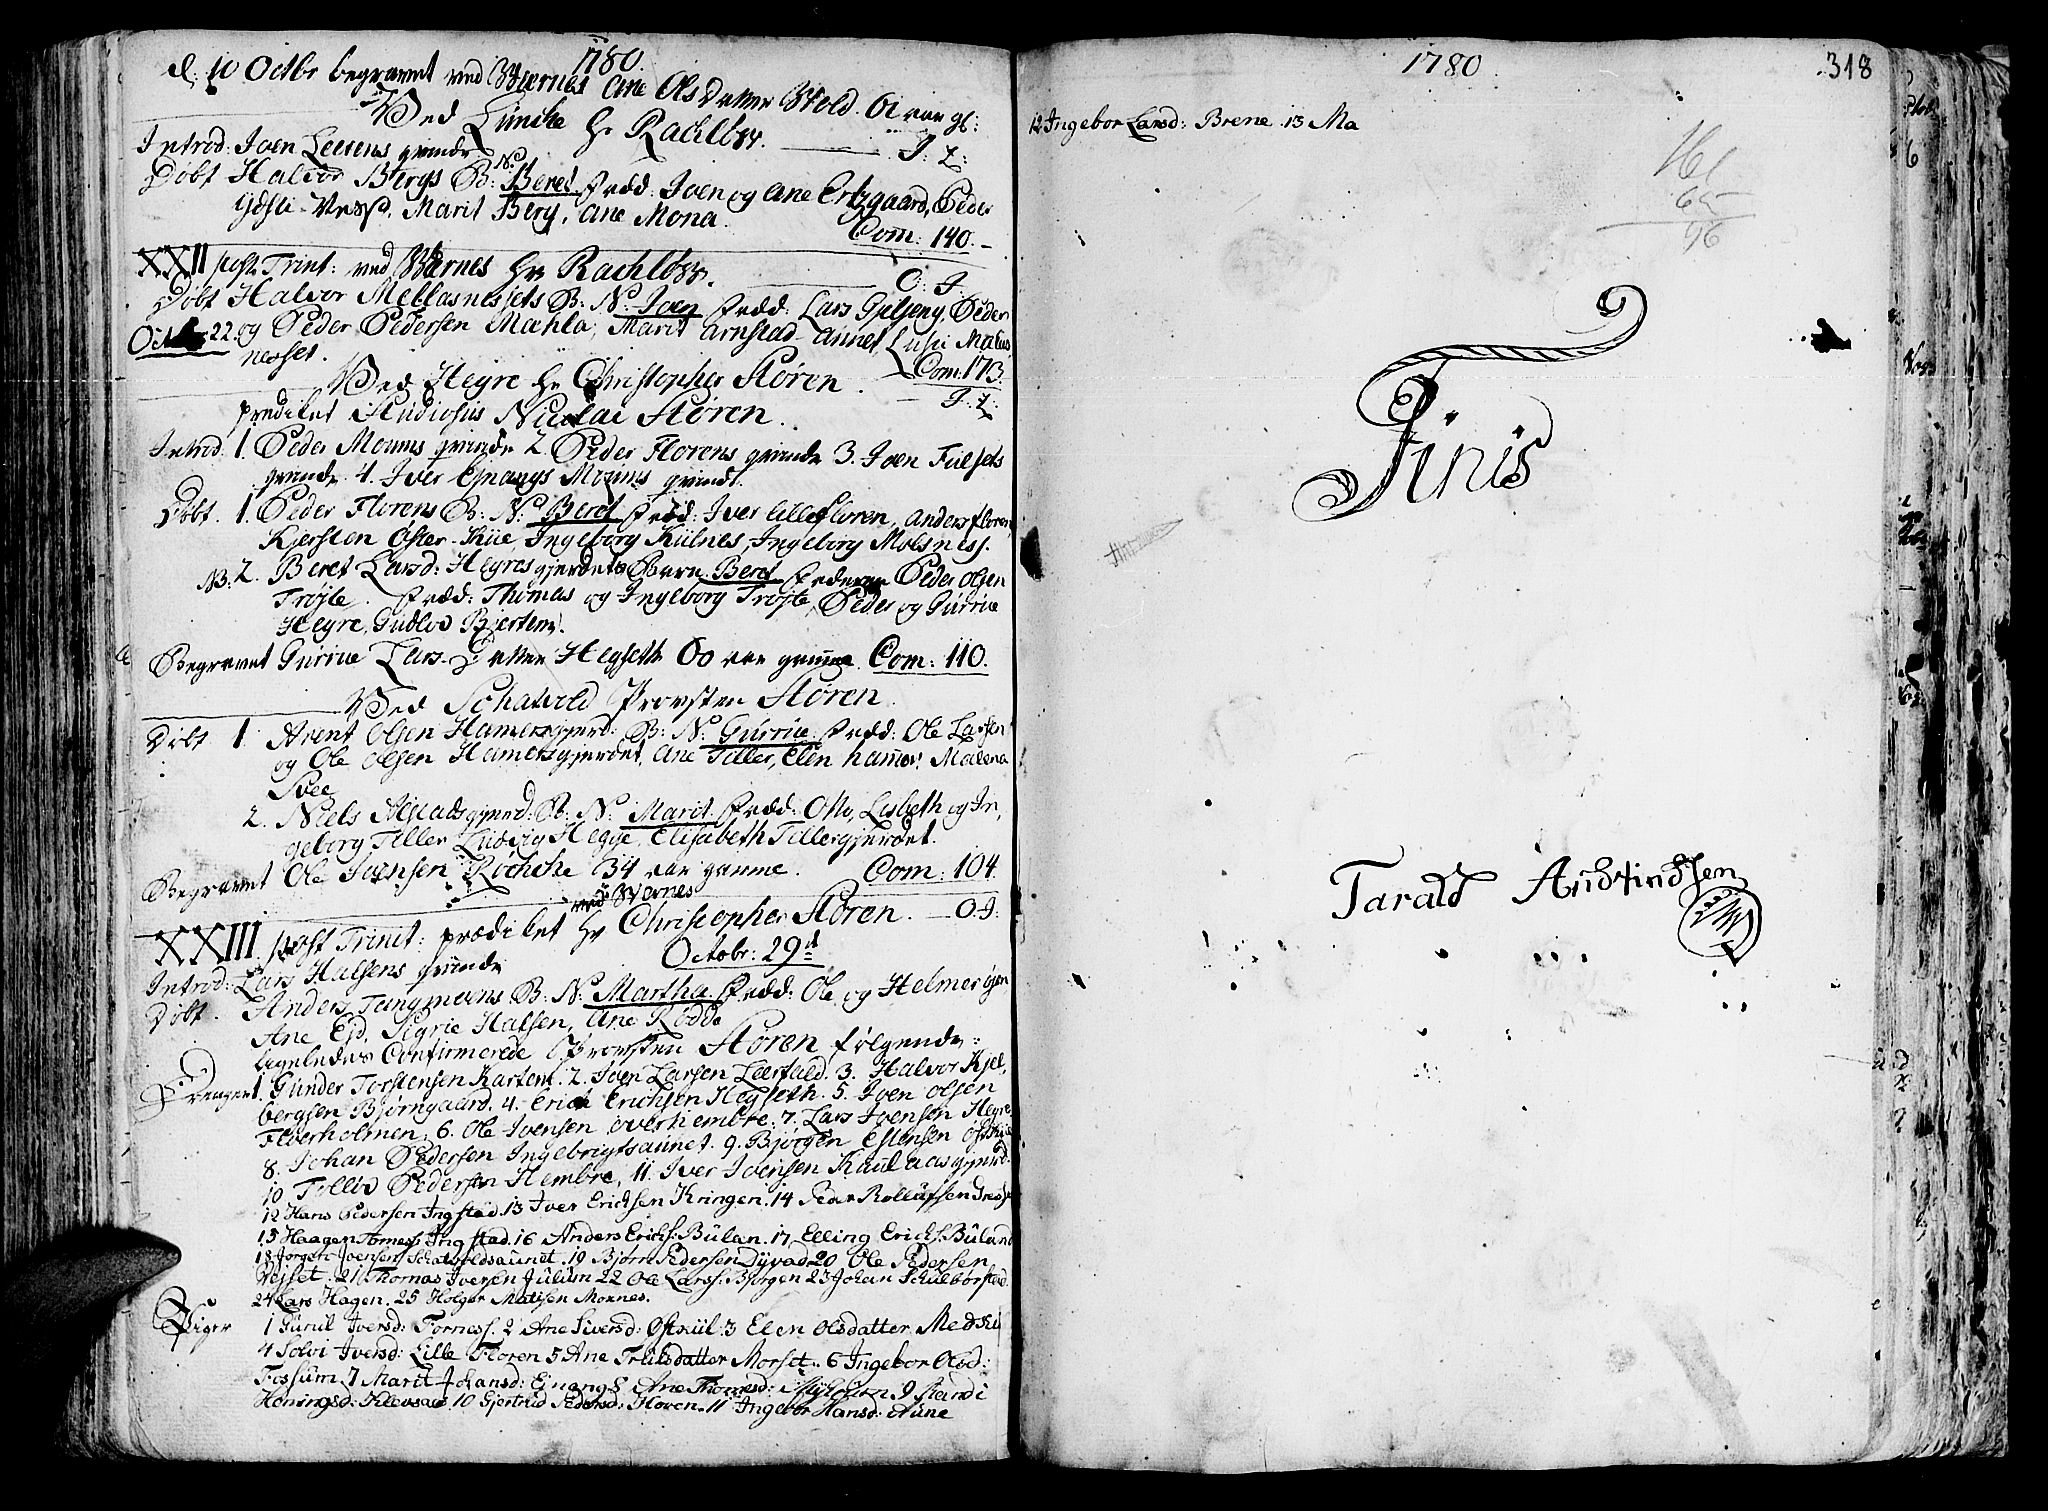 1780.
d. 10 Octbr begravet ved Wærnes Ane Olsdatter Wold. 61 aar gl:
Ved Luncke Hr Rachløw. J: L:
Introd: Joen Leerens qvinde
Døbt Halvor Bergs B: N: Beret fadd: Joen og Ane Ertzgaard, Peder
Marit Berg, Ane Mona. Com: 140.
XXII post Trinit: ved Wærnes Hr Rachløw. O: J.
Døbt Halvor Mellasnessets B: N: Joen fadd: Lars Gielseng, Peder
Octbr 22. og Peder Pedersen Mæhla, Marit Arnstad-aunet,
nesset. Com: 173.
Ved Hegre Hr Christopher Støren. J: L:
prediket Studiosus Nicolai Støren.
Introd. 1. Peder Moums qvinde 2. Peder Florens qvinde 3. Joen Fulsets
qvinde. 4. Iver Einangs Moums qvinde.
Døbt. 1. Peder Florens B: N: Beret fadd: Iver Lillefloren, Anders floren,
Kjersten Øster-Kue, Ingeborg Kulnes, Ingeborg Molsness.
NB: 2. Beret Larsd: Hegresgjerdets Barn Beret faderen Peder Olsen
Trøjte. fadd: Thomas og Ingeborg Trøjte, Peder og Gurrue
Hegre, Gudlov Bjertem.
Begravet Gurrue Larsdatter Hegseth 60 aar gamme. Com: 110.
Ved Schatvold Provsten Støren.
Døbt 1 Arent Olsen Hamersgjerd: B: N: Gurrue. fadd: Ole Larsen
og Ole Olsen Hamersgjerdet, Ane Tiller, Elen hammer, Malena
Svee
2. Niels Alstadsgjerd: B: N: Marit. fadd: Otto, Lisbeth og In,
geborg Tiller Ludvig Hegge, Elisabeth Tillergjerdet.
Begravet Ole Joensen Røchche 34 aar gamme. Com: 104.
ved Wærnes
XXIII. post Trinit: prædiket Hr Christopher Støren. O J.
Octobr: 29d
Introd: Lars Halsens qvinde
Døbt. Anders Tangmoens B: N: Martha fadd: Ole og Helmer øyen,
Ane Eid, Sigrie Halsen, Ane Rødde
ligeledes Confirmerede Provsten Støren følgende:
Drenger 1. Gunder Torstensen Kartem. 2. Joen Larsen Leerfald. 3. Halvor Kjel,
bergsen Bjørngaard. 4. Erich Erichsen Hegseth. 5. Joen Olsen
Floerholmen, 6. Ole Joensen overhembre. 7. Lars Joensen Hegre.
8. Johan Pedersen Ingebrigtsaunet. 9. Bjørgen Estensen østkiil
10 Tolløv Pedersen Hembre, 11. Iver Joensen Kaulaasgjerd.
12 Hans Pedersen Ingstad. 13 Iver Erichsen Kringen. 14 Peder Rollufsen
15 Haagen Ingstad. 16 Anders Erichs: Buland. 17. Elling Erichs: Buland
18. Jørgen Joensen Schatvoldsaunet. 19 Bjørn Pedersen Dyvad 20 Ole Pedersen
Vejset. 21 Thomas Iversen Julum 22 Ole Larss: Bjørgen 23 Johan Schulbørstad.
24 Lars Hagen. 25 Holger Matisen Moxnes.
Piger 1 Gunil Iversd: Forness. 2 Ane Siversd: Østkiil. 3 Elen Olsdatter Medkiil
4 Solvi Iversd: Lille Floren 5 Ane Trulsdatter Morset. 6 Ingebor Olsd:
Fossum 7 Marit Johansd: Einang 8 Ane Thomesd: 9 Randi
Honingsd: Klevsaas 10 Gjertrud Pedersd: Hoven. 11 Ingebor Hansd: Aune
1780.
318
12 Ingebor Larsd: Brene. 13 Ma
161
65
96
Finis
Tarald Andtindsen